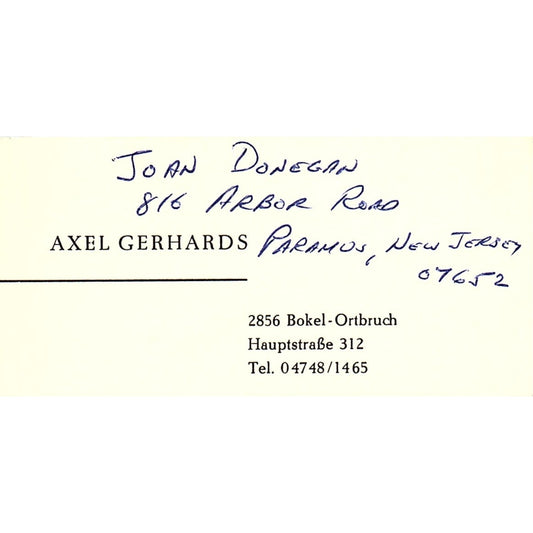 Joan Donegan
816 Arbor Road
AXEL GERHARDS Paramus, New Jersey
07652
2856 Bokel-Ortbruch
Hauptstraße 312
Tel. 04748/1465